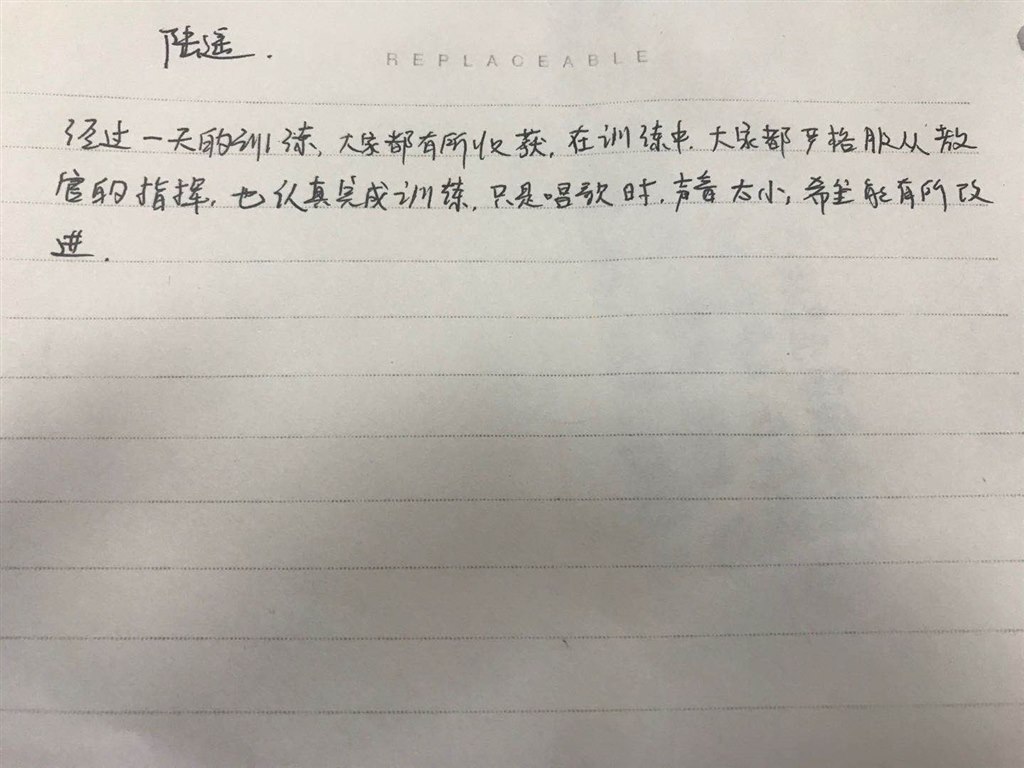 陆遥.
REPLACEABLE
经过一天的训练,大家都有所收获,在训练中,大家都严格服从教
官的指挥,也认真完成训练,只是唱歌时,声音太小,希望能有所改
进.